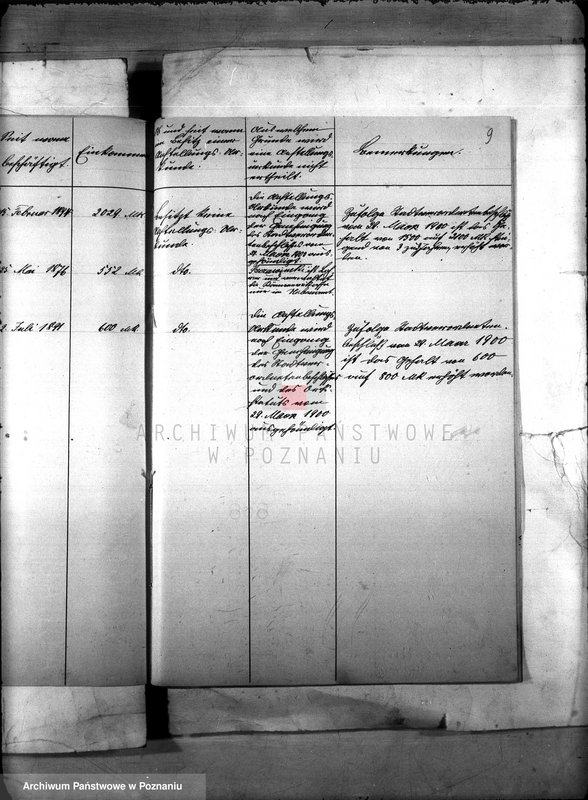 9
Seit wann
beschäftigt
Einkommen
und seit wann
im Besitz einer
Anstellungs-Ur-
kunde.
Aus welchem
Grunde wird
eine Anstellungs-
urkunde nicht
ertheilt.
Bemerkungen.
Februar
2029 Mk
besitzt keine
Anstellungs-Ur-
kunde
die Anstellungs-
Urkunde wird
nach Eingang
der Genehmigung
des Stadtverord-
netenbeschlusses vom
Zufolge Stadtverordnetenbeschluß
vom 29 Maerz 1900 ist das Ge-
halt von 1500 auf
von 3 zu 3 Jahren erhöht wor-
den.
Mai 1876
552 Mk
dto.
Juli 1891
600 Mk
dto.
die Anstellungs-
Urkunde wird
nach Eingang
der Genehmigung
des Stadtver-
ordnetenbeschlusses
und des Orts-
statuts vom
29 Maerz 1900
ausgehändigt
Zufolge Stadtverordneten-
beschluß vom 29 Maerz 1900
ist das Gehalt von 600
auf 800 Mk erhöht worden.
ARCHIWUM PAŃSTWOWE
W POZNANIU
Archiwum Państwowe w Poznaniu